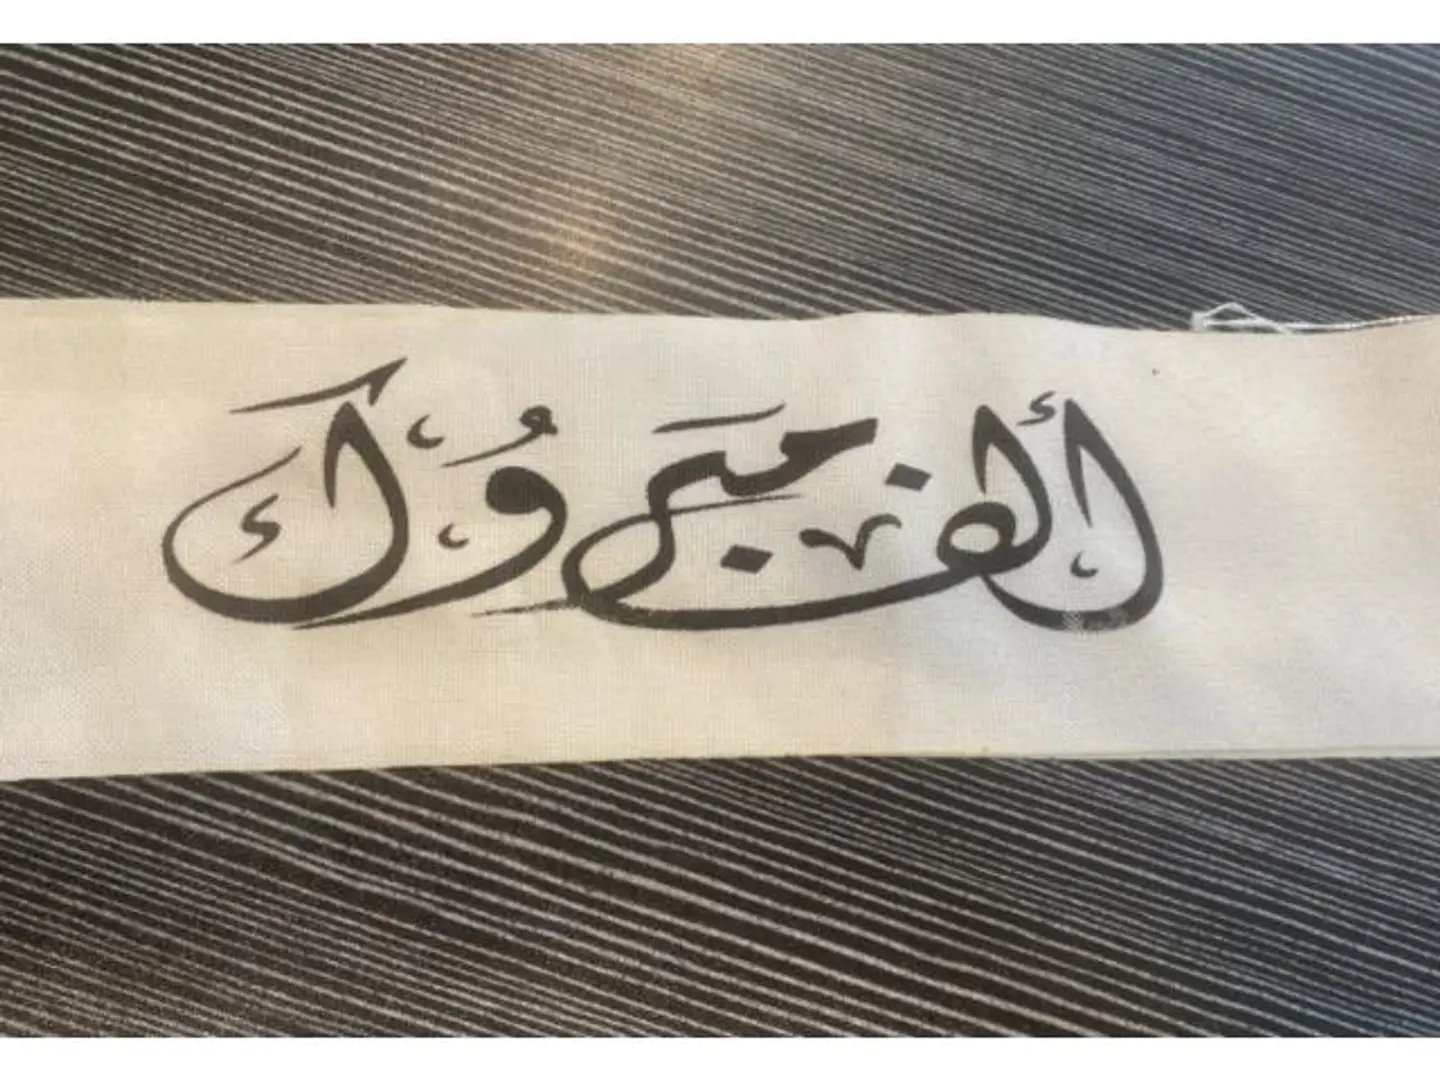 ألف مبروك